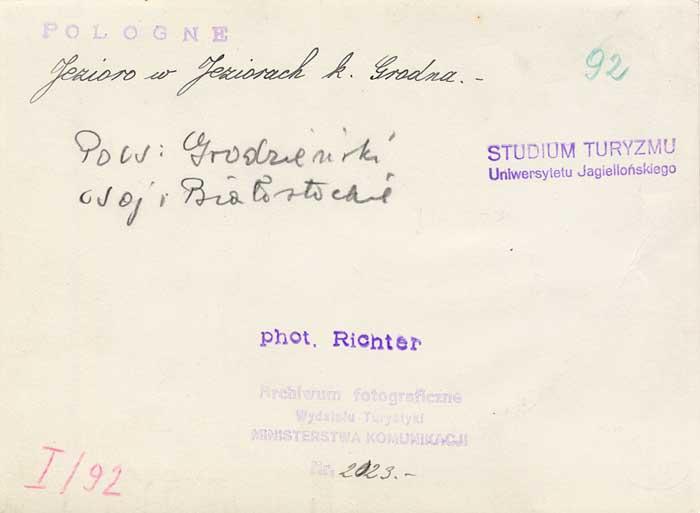 POLOGNE
Jezioro w Jeziorach k. Grodna.-
92
Pow: Grodzieński
woj: Białostockie
STUDIUM TURYZMU
Uniwersytetu Jagiellońskiego
phot. Richter
Archiwum fotograficzne
Wydziału Turystyki
MINISTERSTWA KOMUNIKACJI
Nr. 2023.-
I/92